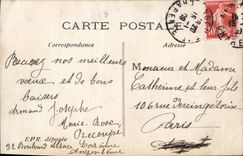 CARTE POSTALE
Correspondance
Recevez nos meilleurs
vœux et de bons
baisers
Armand Josephe
Marie Rose
EPR. déposée
32 Boulevard Alsace Lorraine
Angoulême
Monsieur et Madame
Catherine et leur fils
106 rue Vercingétorix
Paris